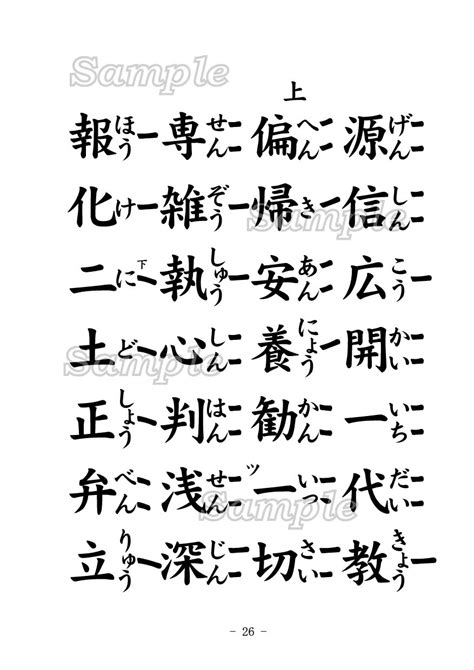 上
源げん信しん広こう開かい一いち代だい教きょう
偏へん帰き安あん養にょう勧かん一いっ切さい
ツ
専せん雑ぞう執しゅう心しん判はん浅せん深じん
報ほう化け二に土ど正しょう弁べん立りゅう
下
- 26 -
Sample
Sample
Sample
Sample